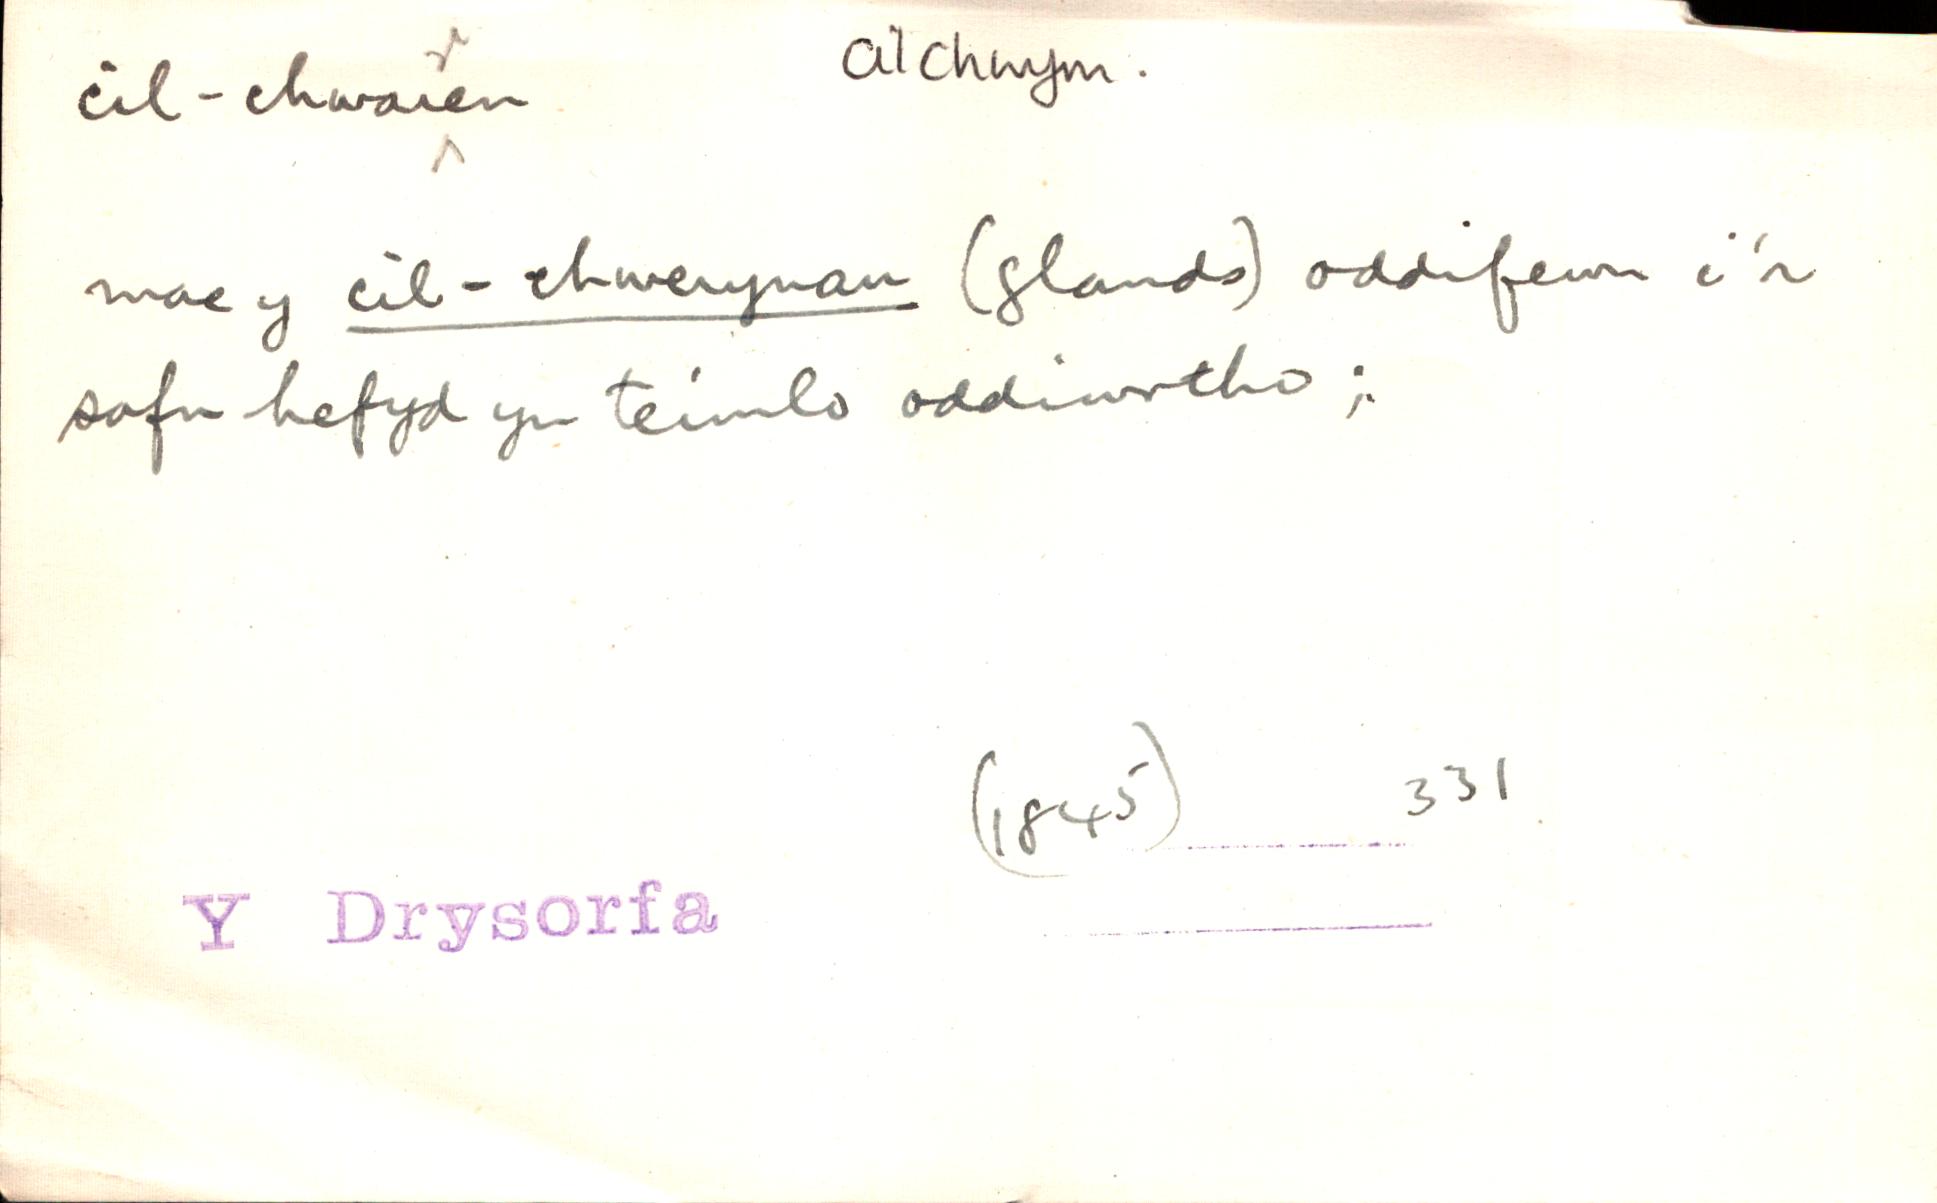 cil-chwaren
cilchwyrn.
mae y cil-chwerynau (glands) oddifewn i'r
safn hefyd yn teimlo oddiwrtho;
(1845) 331
Y Drysorfa